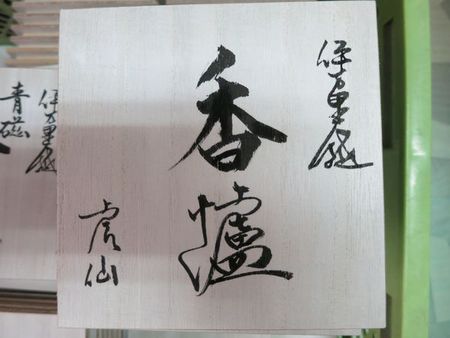 伊万里焼
香爐
虎仙
伊万里焼
青磁